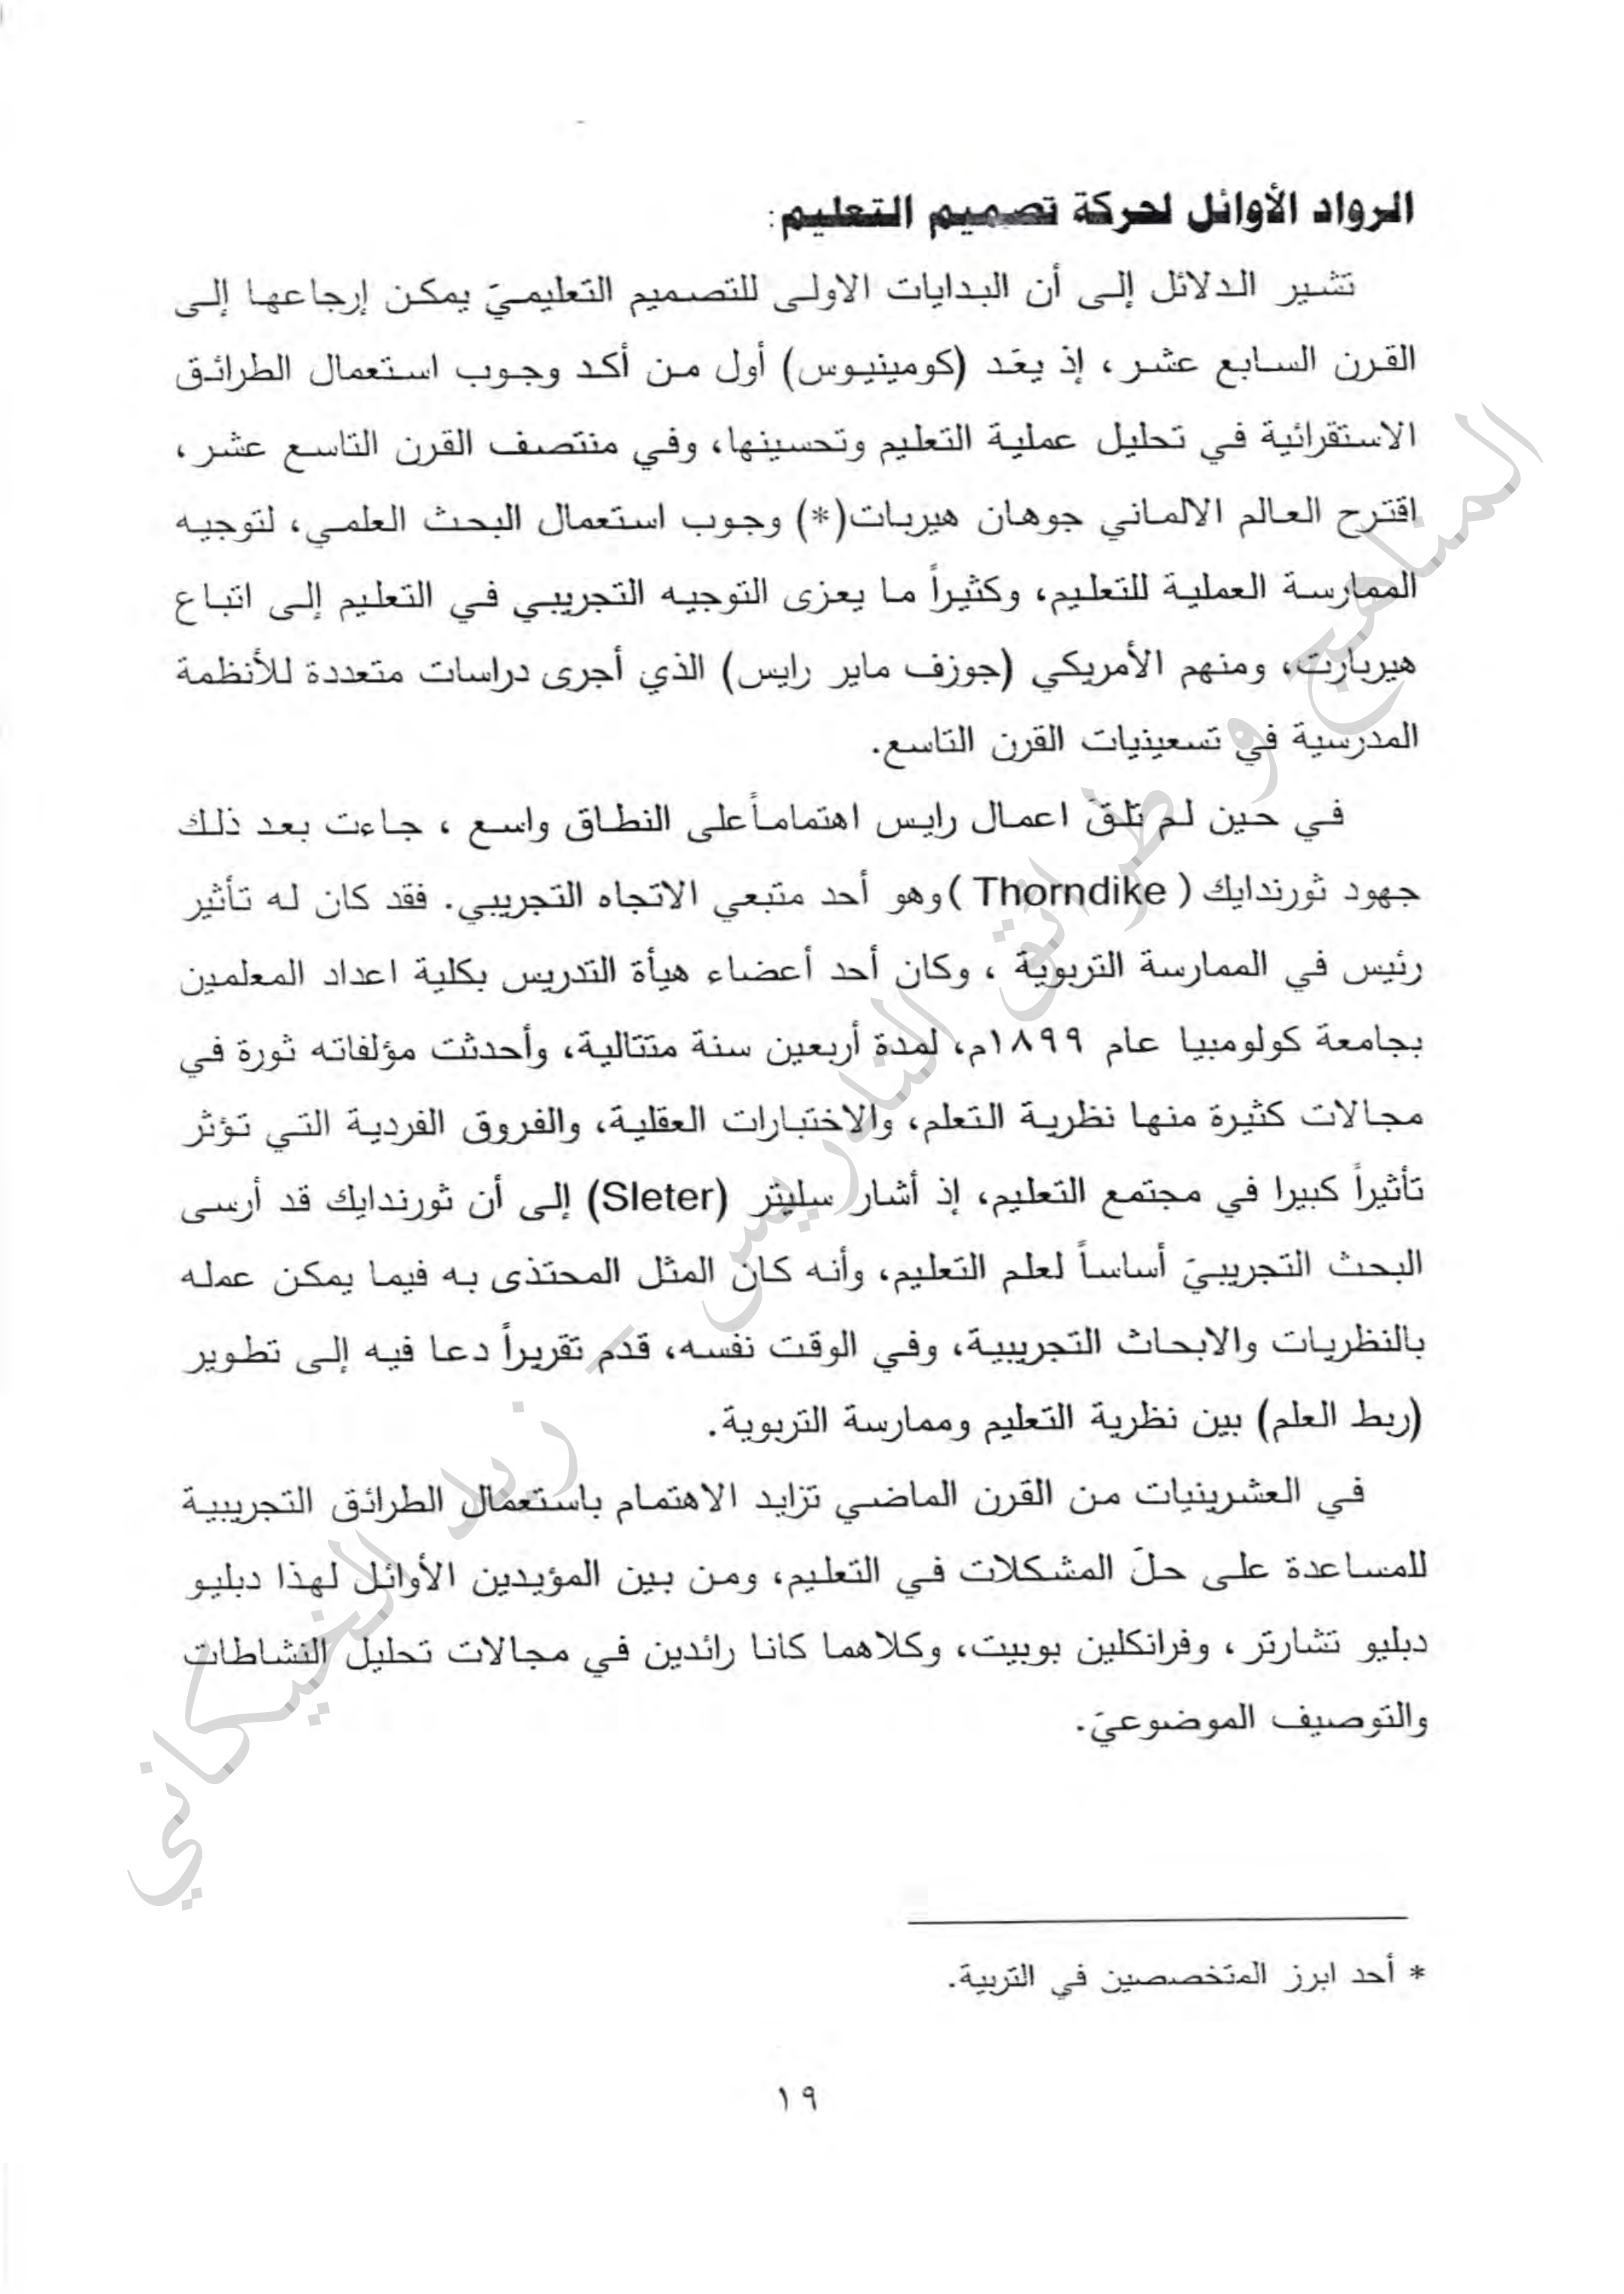 الرواد الأوائل لحركة تصميم التعليم:
تشير الدلائل إلى أن البدايات الاولى للتصميم التعليميَ يمكن إرجاعها إلى
القرن السابع عشر، إذ يعَد (كومينيوس) أول من أكد وجوب استعمال الطرائق
الاستقرائية في تحليل عملية التعليم وتحسينها، وفي منتصف القرن التاسع عشر،
اقترح العالم الالماني جوهان هيربات(*) وجوب استعمال البحث العلمي، لتوجيه
الممارسة العملية للتعليم، وكثيراً ما يعزى التوجيه التجريبي في التعليم إلى اتباع
هيربارت، ومنهم الأمريكي (جوزف ماير رايس) الذي أجرى دراسات متعددة للأنظمة
المدرسية في تسعينيات القرن التاسع.
في حين لم تلقَ اعمال رايس اهتماماً على النطاق واسع ، جاءت بعد ذلك
جهود ثورندايك ( Thorndike ) وهو أحد متبعي الاتجاه التجريبي. فقد كان له تأثير
رئيس في الممارسة التربوية ، وكان أحد أعضاء هيأة التدريس بكلية اعداد المعلمين
بجامعة كولومبيا عام ١٨٩٩م، لمدة أربعين سنة متتالية، وأحدثت مؤلفاته ثورة في
مجالات كثيرة منها نظرية التعلم، والاختبارات العقلية، والفروق الفردية التي تؤثر
تأثيراً كبيرا في مجتمع التعليم، إذ أشار سليتر (Sleter) إلى أن ثورندايك قد أرسى
البحث التجريبيَ أساساً لعلم التعليم، وأنه كان المثل المحتذى به فيما يمكن عمله
بالنظريات والابحاث التجريبية، وفي الوقت نفسه، قدم تقريراً دعا فيه إلى تطوير
(ربط العلم) بين نظرية التعليم وممارسة التربوية.
في العشرينيات من القرن الماضي تزايد الاهتمام باستعمال الطرائق التجريبية
للمساعدة على حلَ المشكلات في التعليم، ومن بين المؤيدين الأوائل لهذا دبليو
دبليو تشارتر، وفرانكلين بوبيت، وكلاهما كانا رائدين في مجالات تحليل النشاطات
والتوصيف الموضوعيَ.
* أحد ابرز المتخصصين في التربية.
١٩
المناهج و طرائق التدريس - زيد الخيكاني